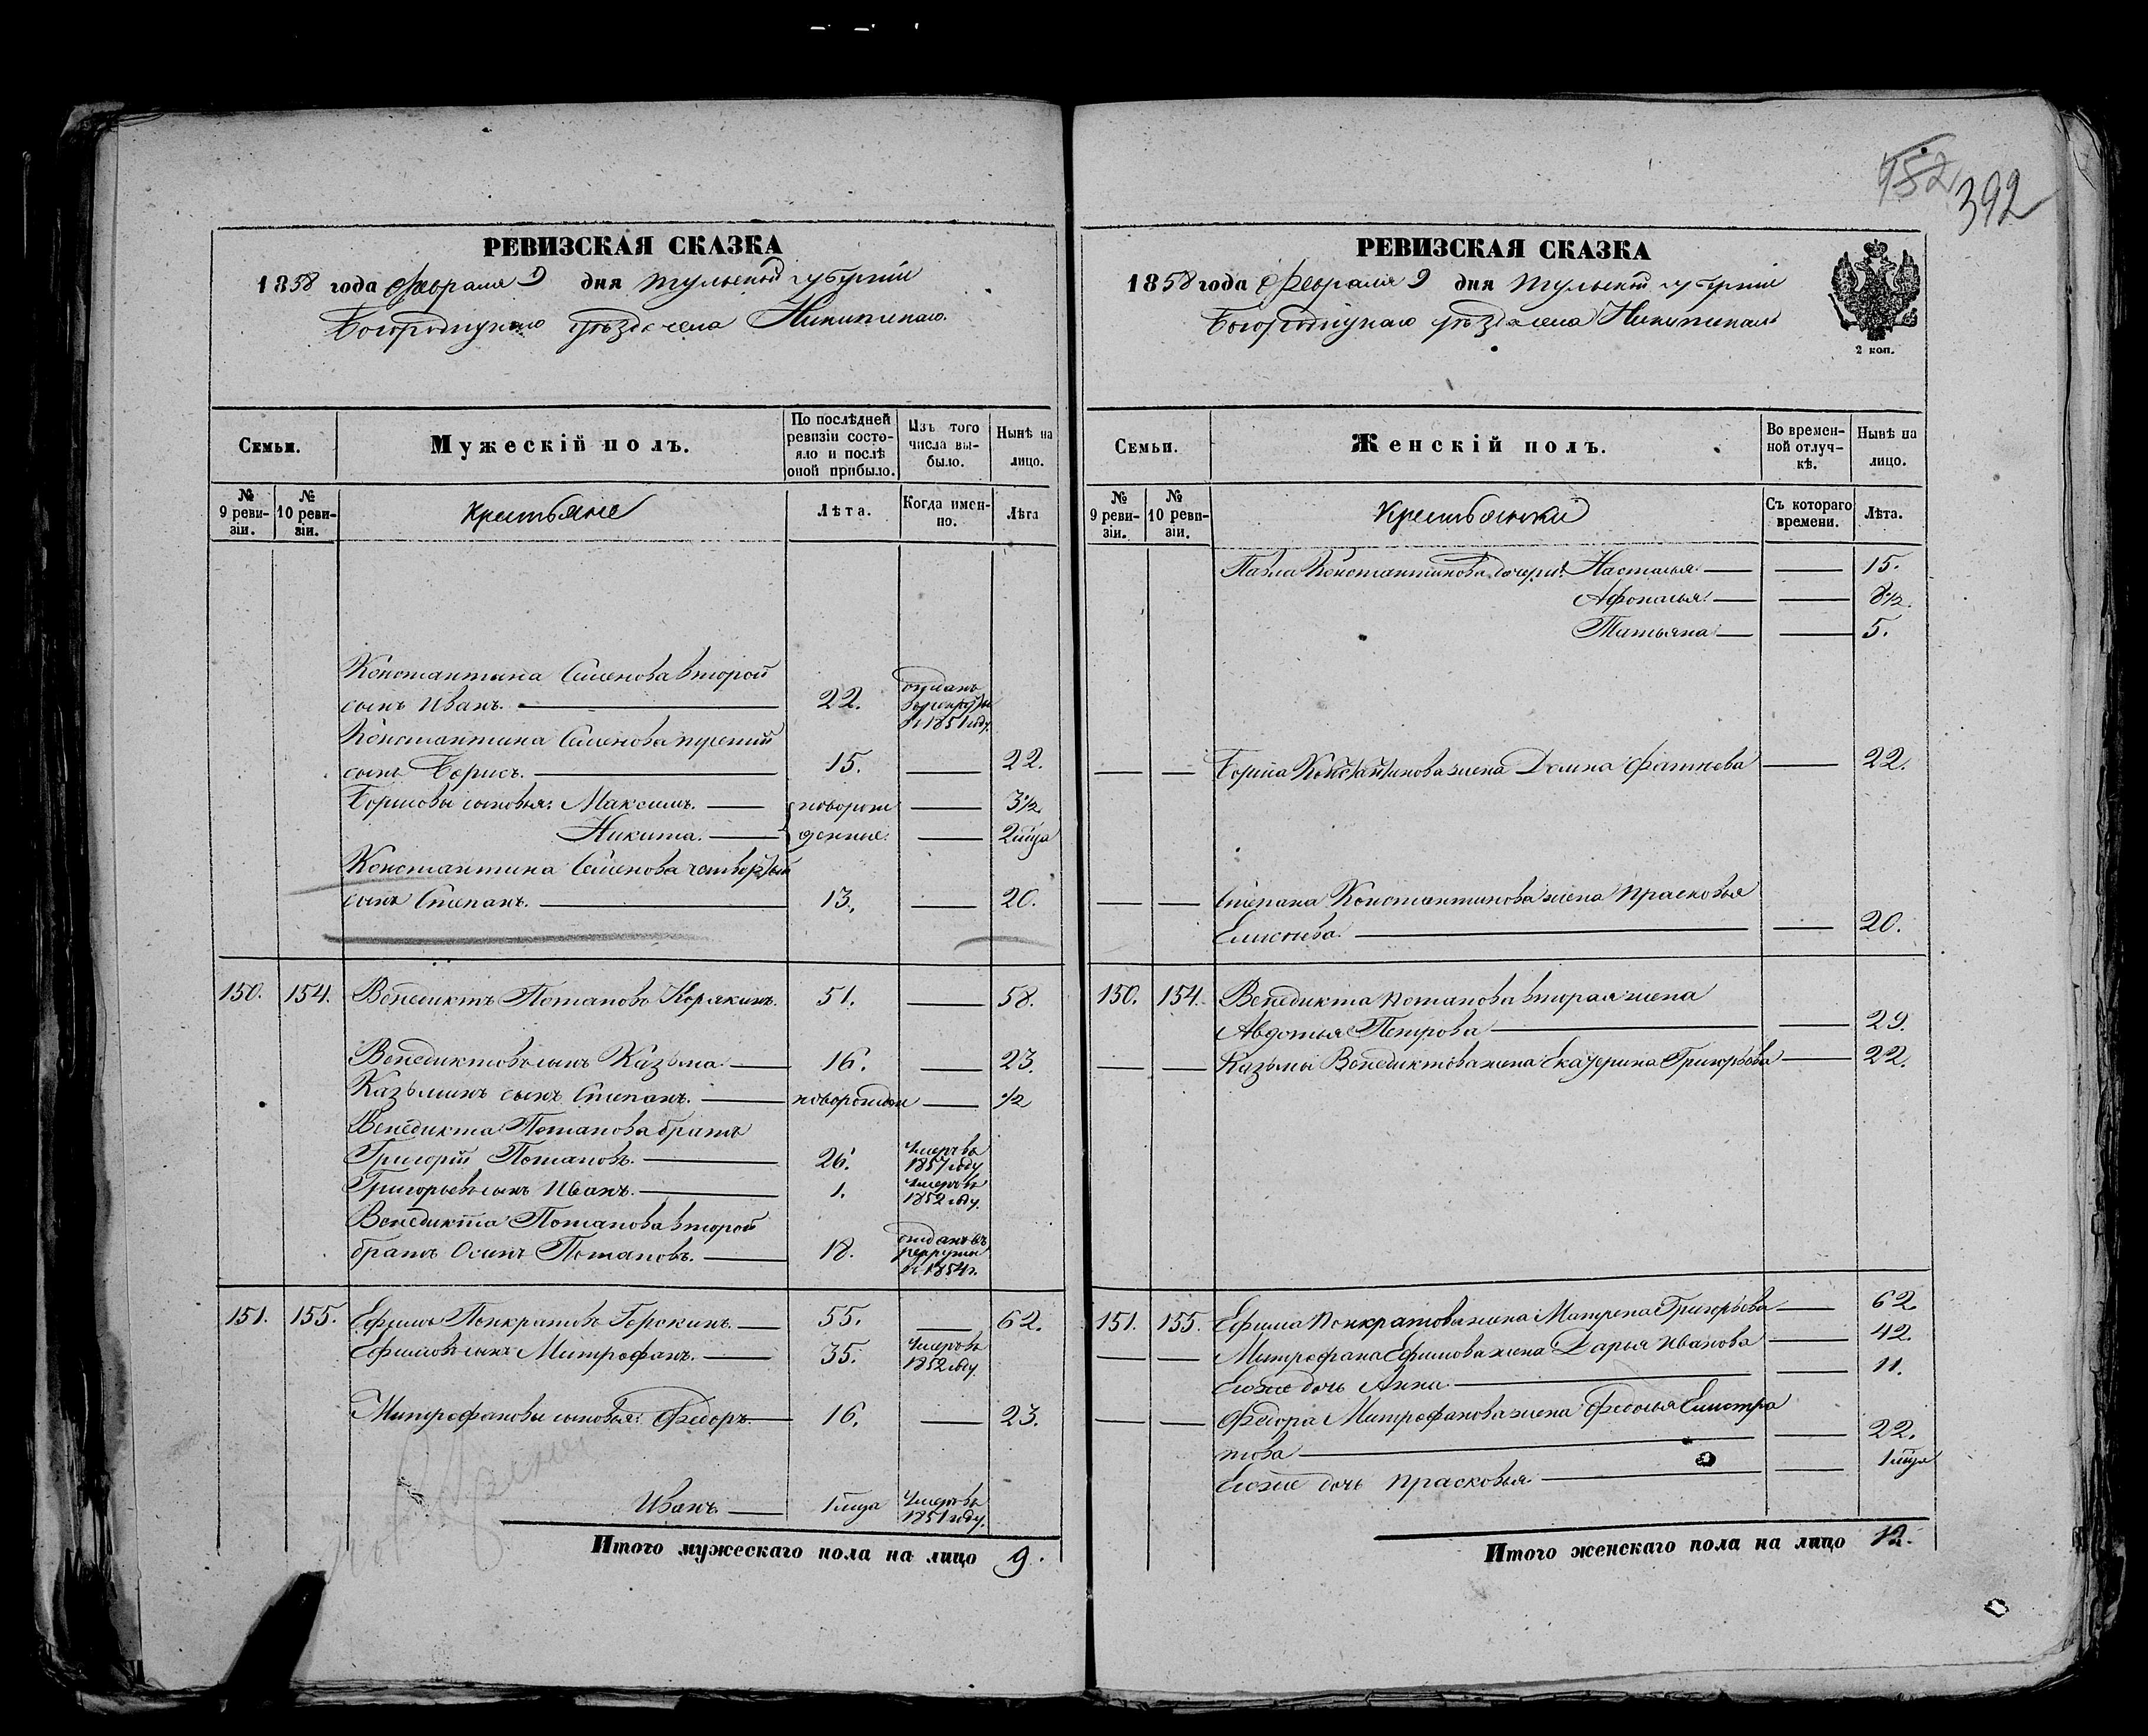 952
392
РЕВИЗСКАЯ СКАЗКА
1858 года Февраля 9 дня Тульской губернiи
Богородицкаго уѣзда села Никитскаго.
Семьи.
Мужескiй полъ.
По послѣдней ревизiи состояло и послѣ оной прибыло.
Изъ того числа выбыло.
Нынѣ на лицо.
№ 9 ревизiи.
№ 10 ревизiи.
Крестьяне
Лѣта.
Когда именно.
Лѣта
Константина Семенова второй
сынъ Иванъ. 22. отданъ въ рекруты въ 1851 году.
Константина Семенова третiй
сынъ Борисъ. 15. 22.
Борисовы сыновья: Максимъ. новорож 3½
Никита. денные. 2 мѣца
Константина Семенова четвертый
сынъ Степанъ. 13. 20.
150. 154. Венедиктъ Потаповъ Корякинъ. 51. 58.
Венедиктовъ сынъ Казьма 16. 23.
Казьминъ сынъ Степанъ. новорожден ½
Венедикта Потапова братъ
Григорiй Потаповъ. 26. Умеръ въ 1857 году
Григорьевъ сынъ Иванъ. 1. Умеръ въ 1852 году.
Венедикта Потапова второй
братъ Осипъ Потаповъ. 18. отданъ въ рекруты въ 1854 г.
151. 155. Ефимъ Понкратовъ Горскинъ. 55. 62.
Ефимовъ сынъ Митрофанъ. 35. Умеръ въ 1852 году
Митрофановы сыновья: Федоръ. 16. 23.
Иванъ. 1 мѣца Умеръ въ 1851 году.
Итого мужескаго пола на лицо 9.
РЕВИЗСКАЯ СКАЗКА
1858 года Февраля 9 дня Тульской губернiи
Богородицкаго уѣзда села Никитскаго
2 коп.
Семьи.
Женскiй полъ.
Во временной отлучкѣ.
Нынѣ на лицо.
№ 9 ревизiи.
№ 10 ревизiи.
Крестьянки
Съ котораго времени.
Лѣта.
Павла Константинова дочери: Настасья 15.
Афонасья 8½.
Татьяна 5.
Бориса Константинова жена Домна Фатнева 22.
Степана Константинова жена Прасковья
Елисеева 20.
150. 154. Венедикта Потапова вторая жена
Авдотья Петрова 29.
Казьмы Венедиктова жена Екатерина Григорьева 22.
151. 155. Ефима Понкратова жена Матрена Григорьева 62.
Митрофана Ефимова жена Дарья Иванова 42.
Ево же дочь Анна 11.
Федора Митрофанова жена Федосья Елистра
това 22.
Ево же дочь Прасковья 1 мѣца
Итого женскаго пола на лицо 12.